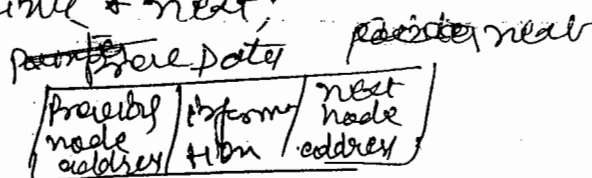 & next,
Data next
Previous node address information next node address